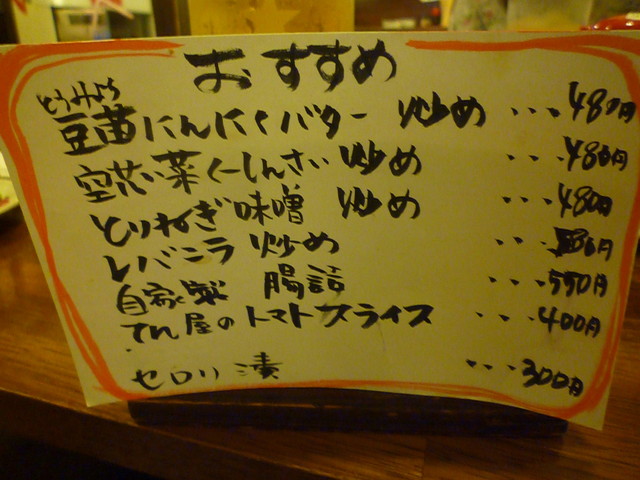 おすすめ
とうみょう
豆苗にんにくバター炒め ...480円
空芯菜くーしんさい炒め ...480円
とりねぎ味噌炒め ...480円
レバニラ炒め ...円
自家製腸詰 ...550円
てん屋のトマトスライス ...400円
セロリ漬 ...300円